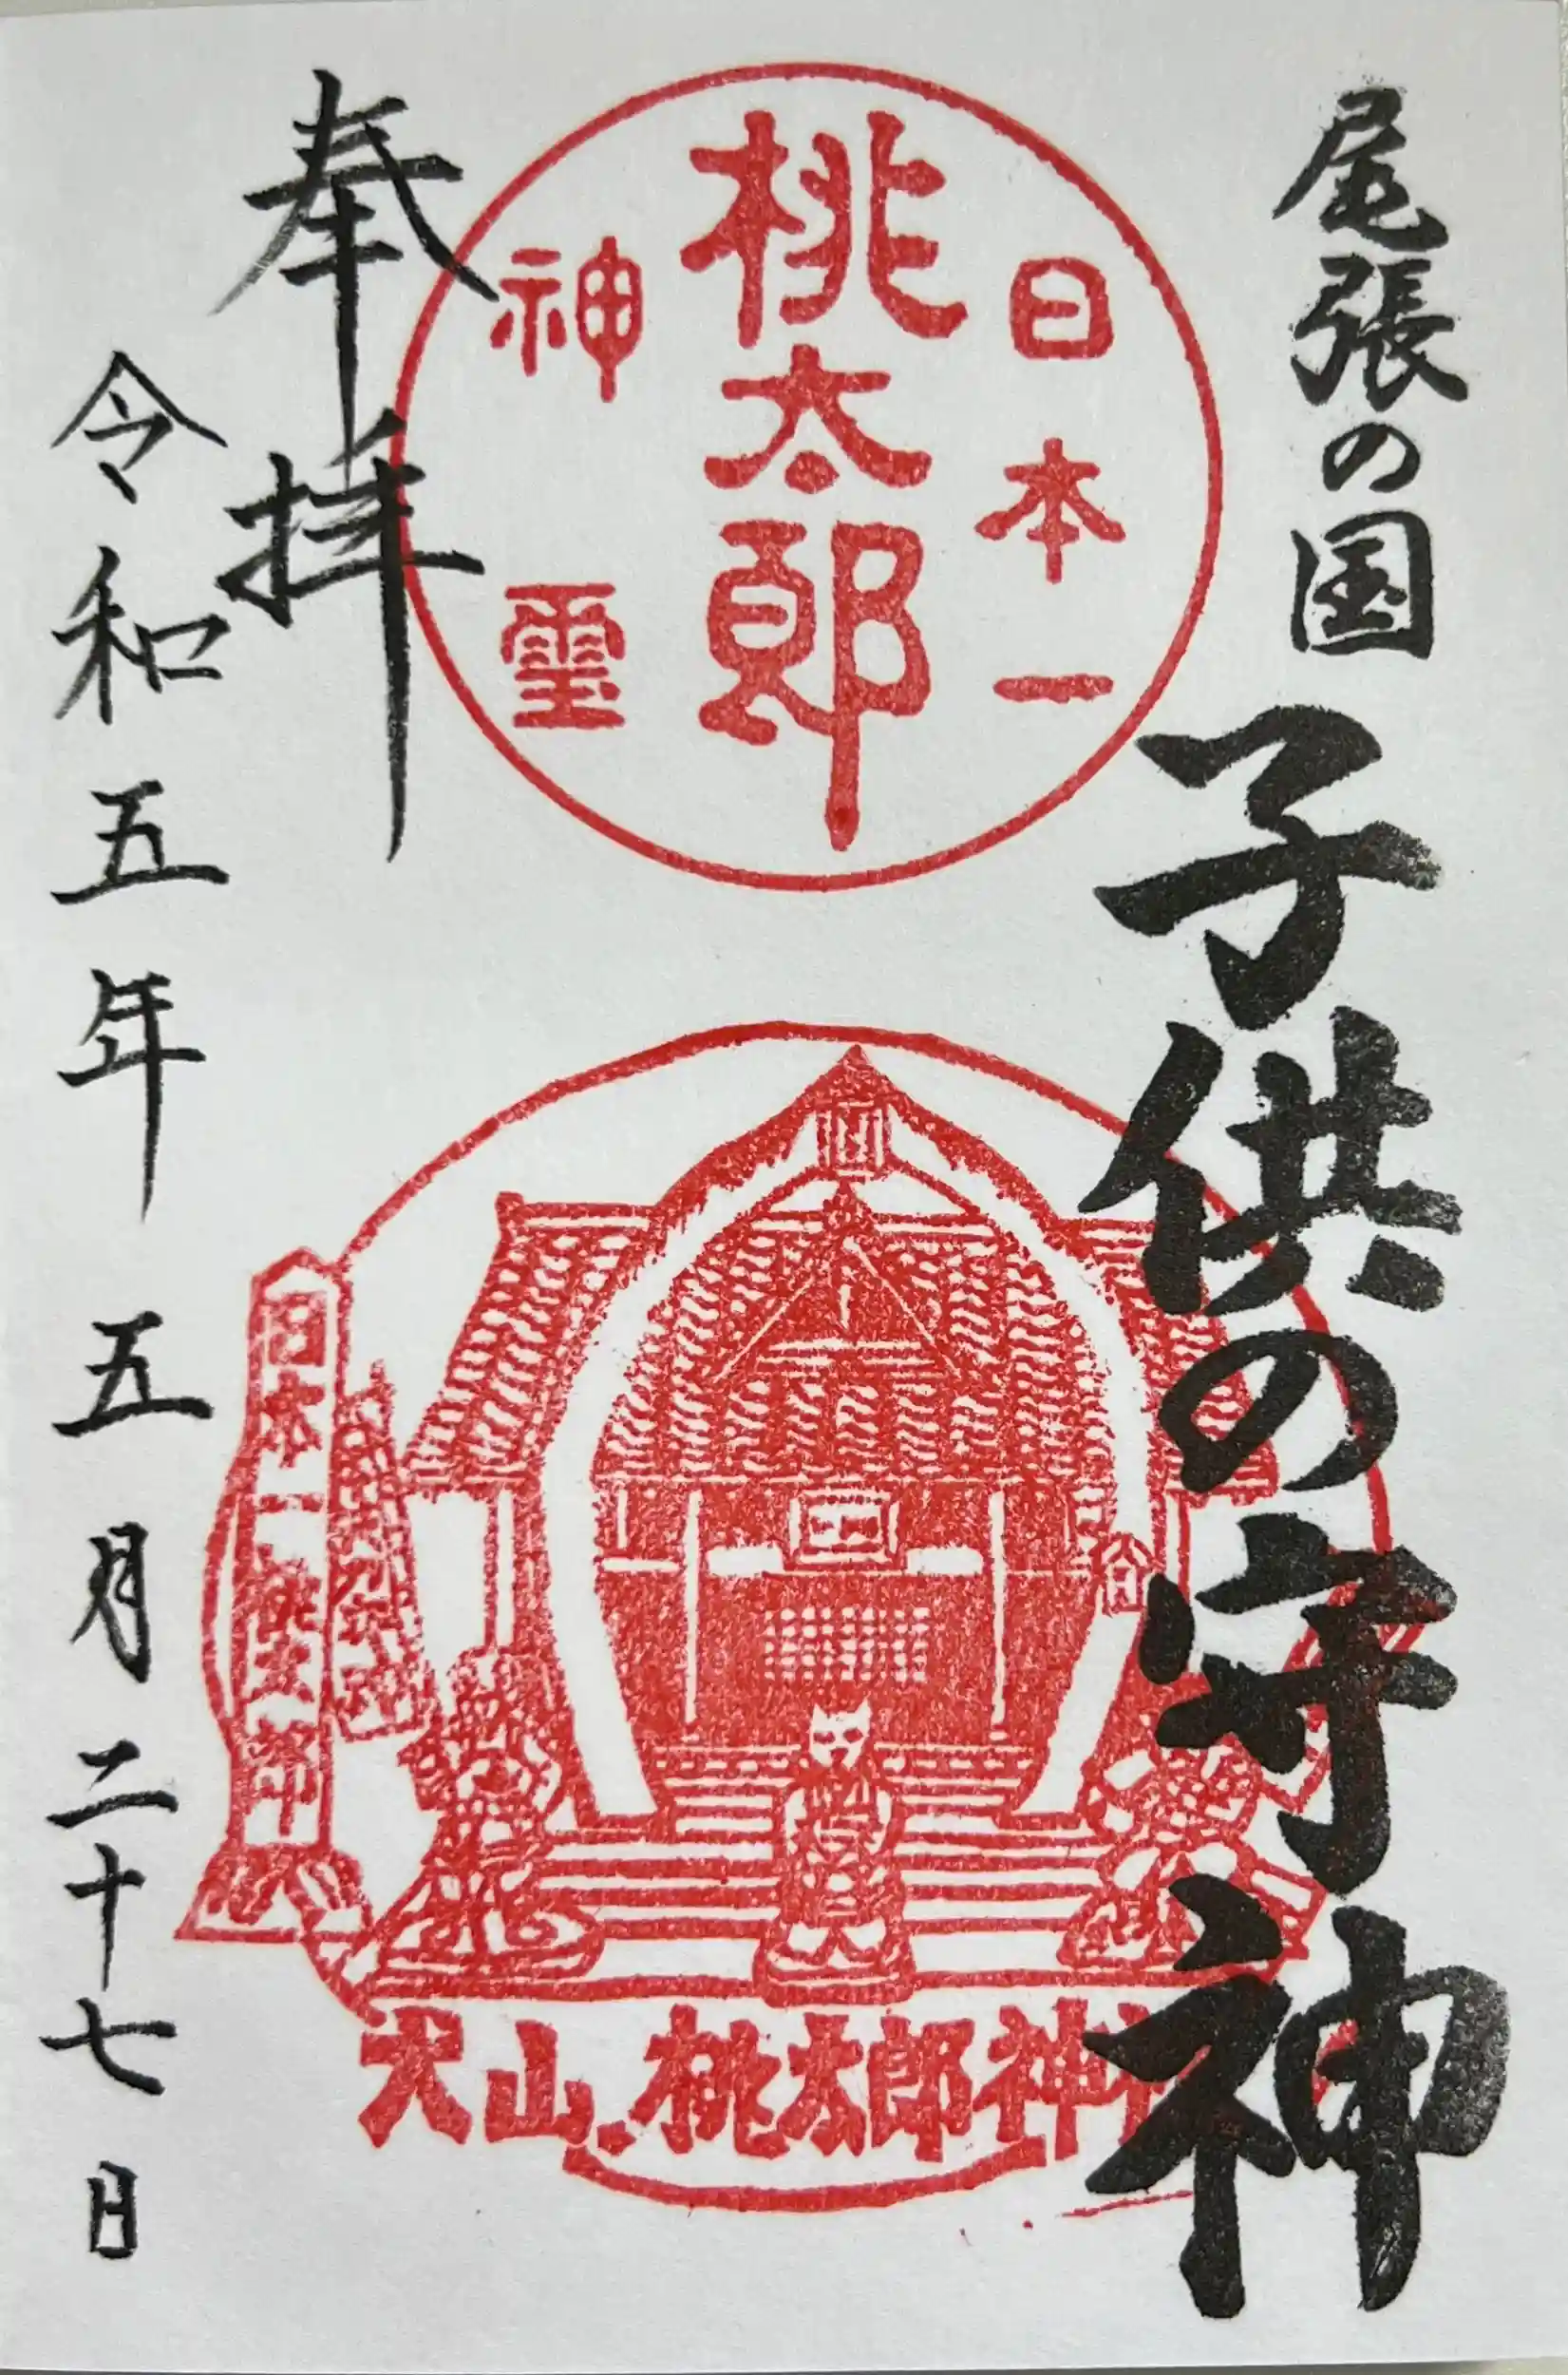 尾張の国 子供の守神
日本一
桃太郎
神霊
奉拝
令和五年 五月二十七日
日本一桃太郎
犬山桃太郎神